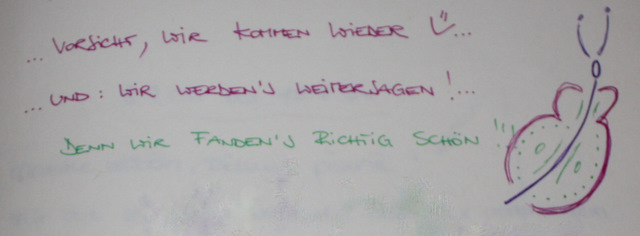 ... VORSICHT, WIR KOMMEN WIEDER ...
... UND: WIR WERDEN'S WEITERSAGEN!...
DENN WIR FANDEN'S RICHTIG SCHÖN!!!